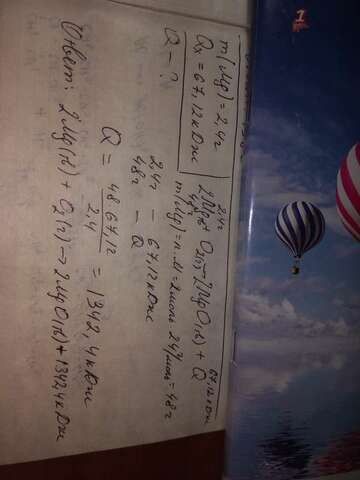 m(Mg) = 2,4г
Qx = 67,12 кДж
Q - ?
2,4г 67,12 кДж
2Mg(тв) + O2(г) → 2MgO(тв) + Q
48г
m(Mg) = n·M = 2моль · 24г/моль = 48г
2,4г - 67,12 кДж
48г - Q
Q = 48·67,12 / 2,4 = 1342,4 кДж
Ответ: 2Mg(тв) + O2(г) → 2MgO(тв) + 1342,4 кДж